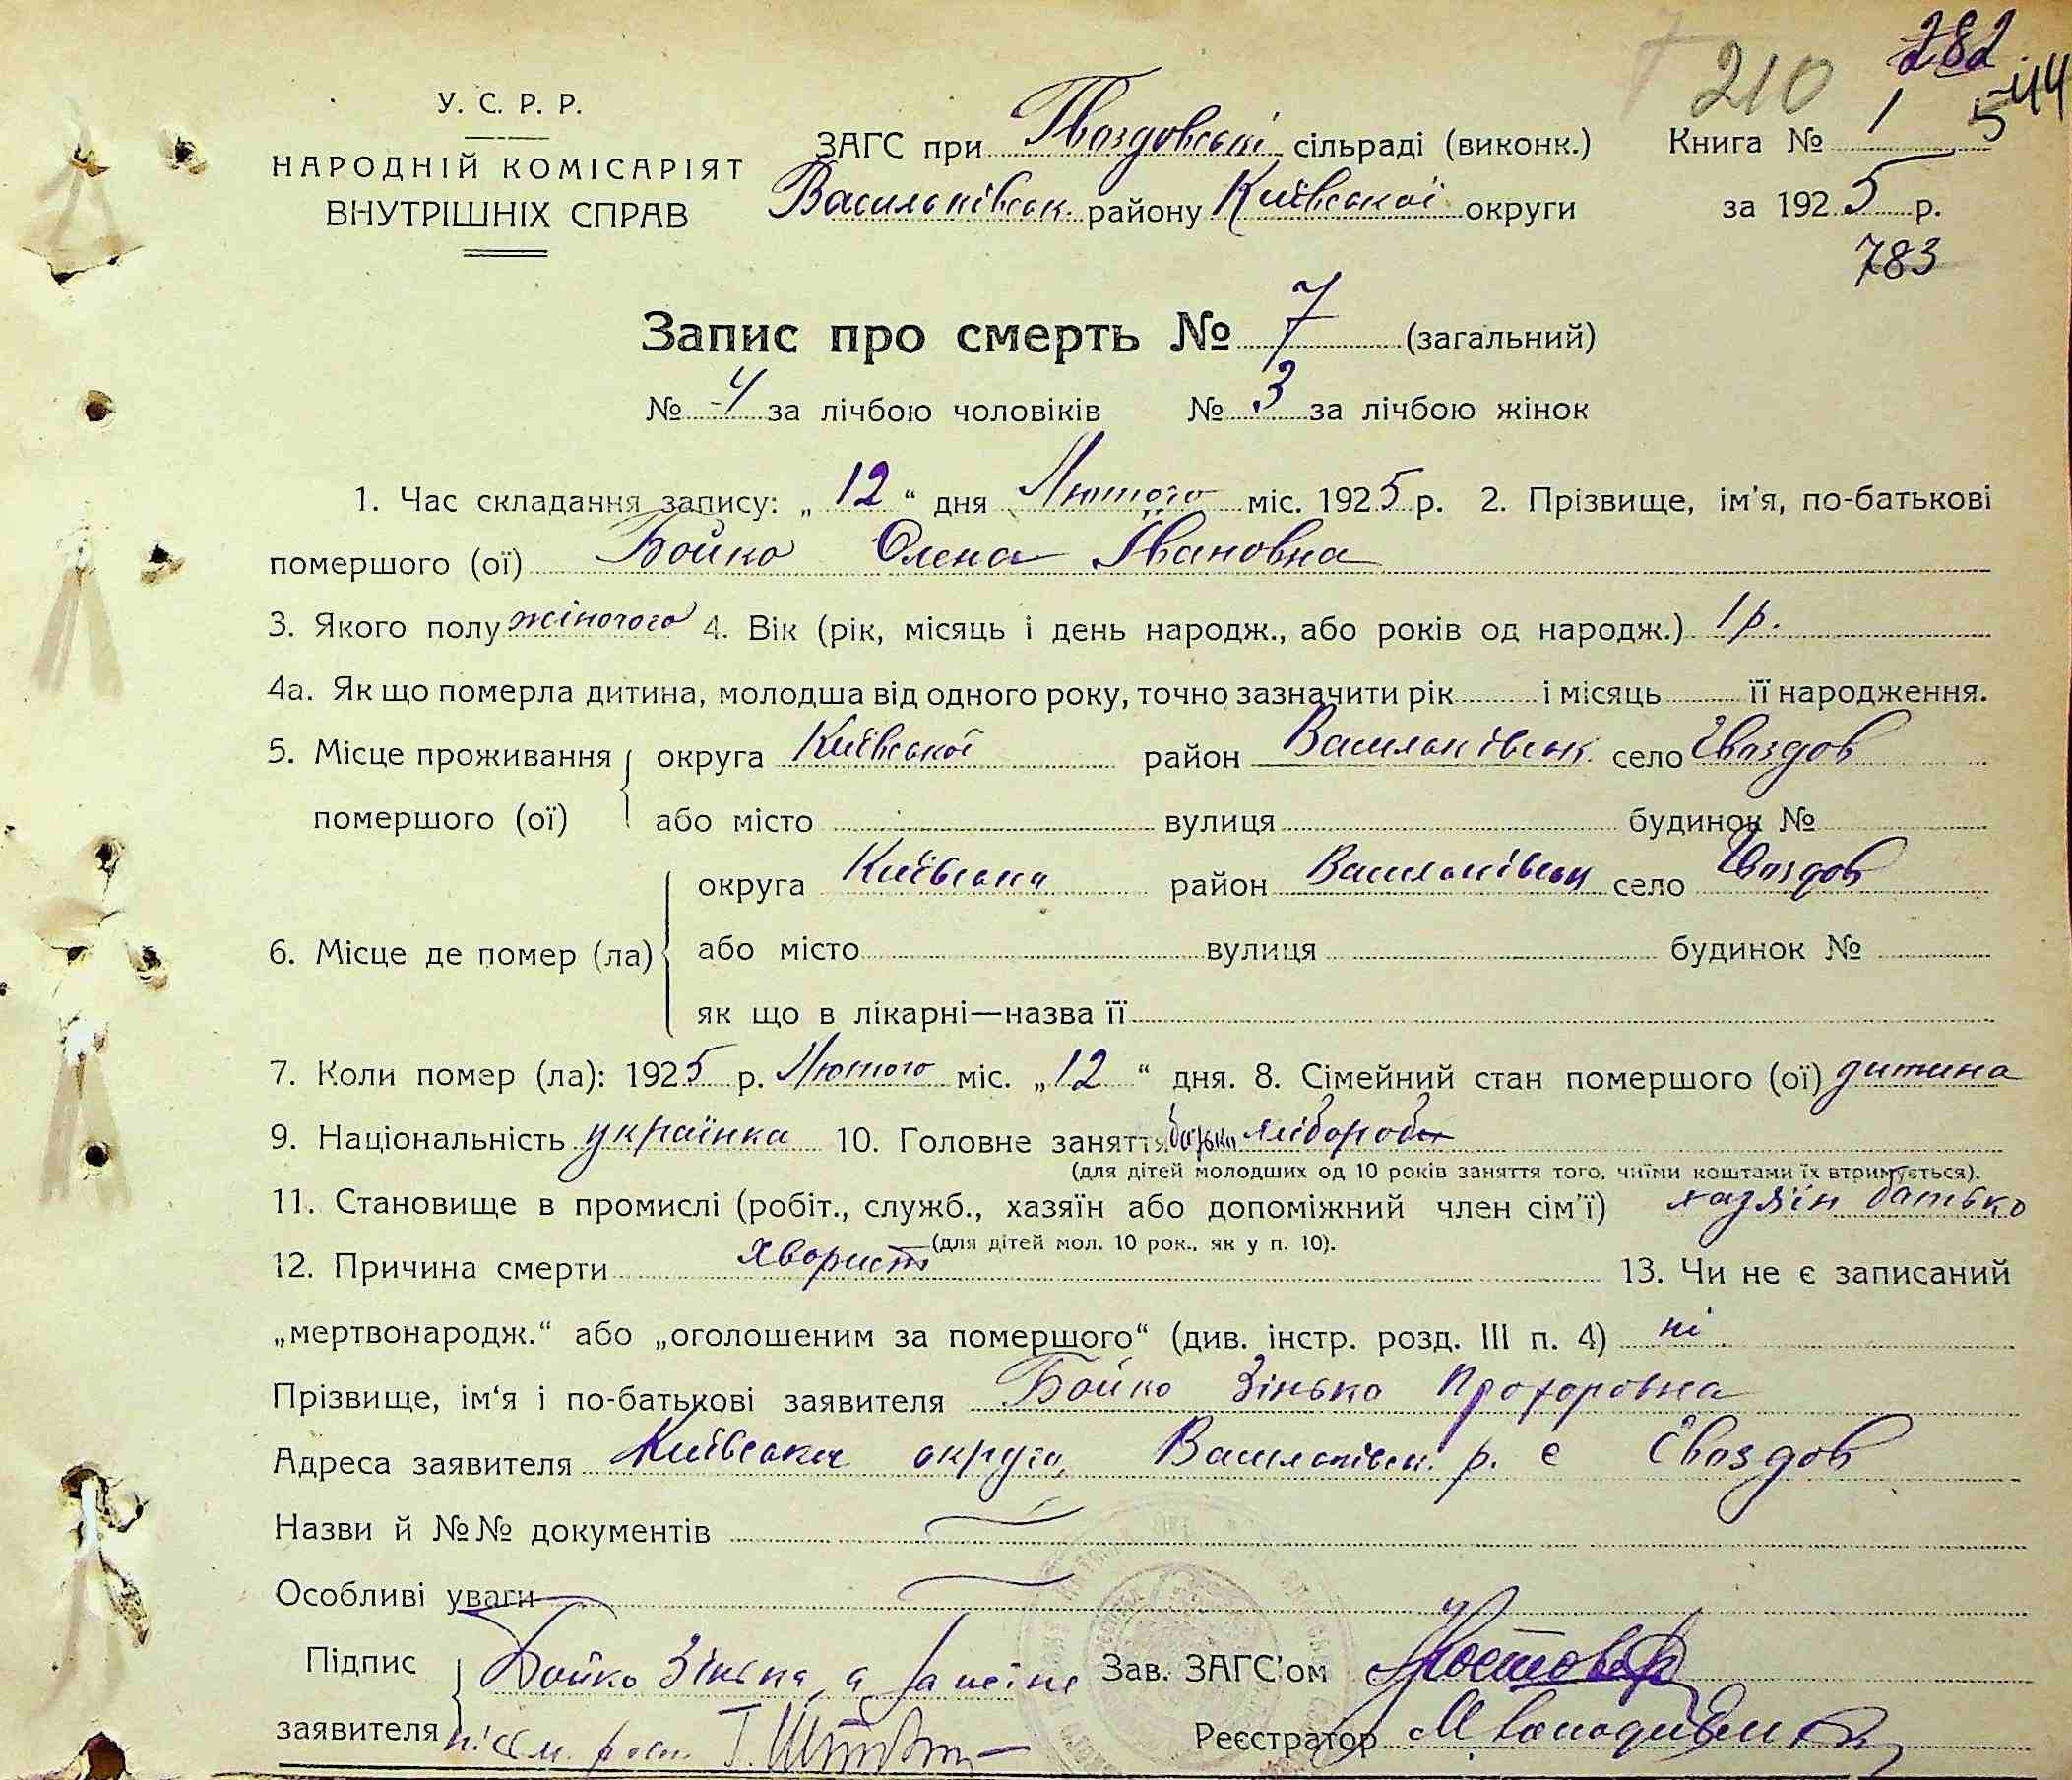 210 282
544
У. С. Р. Р.
НАРОДНІЙ КОМІСАРІЯТ
ВНУТРІШНІХ СПРАВ
ЗАГС при Гвоздовські сільраді (виконк.) Книга № 1
Васильківськ. району Київської округи за 1925 р.
783
Запис про смерть № 7 (загальний)
№ 4 за лічбою чоловіків № 3 за лічбою жінок
1. Час складання запису: „ 12 “ дня Лютого міс. 1925 р. 2. Прізвище, ім'я, по-батькові
помершого (ої) Бойко Олена Івановна
3. Якого полу жіночого 4. Вік (рік, місяць і день народж., або років од народж.) 1 р.
4а. Як що померла дитина, молодша від одного року, точно зазначити рік і місяць її народження.
5. Місце проживання округа Київської район Васильківськ. село Гвоздов
помершого (ої) або місто вулиця будинок №
округа Київська район Васильківськ село Гвоздов
6. Місце де помер (ла) або місто вулиця будинок №
як що в лікарні—назва її
7. Коли помер (ла): 1925 р. Лютого міс. „ 12 “ дня. 8. Сімейний стан помершого (ої) дитина
9. Національність українка 10. Головне заняття батьки хліборобы
(для дітей молодших од 10 років заняття того, чиїми коштами їх втримується).
11. Становище в промислі (робіт., служб., хазяїн або допоміжний член сім'ї) хазяїн батько
(для дітей мол. 10 рок., як у п. 10).
12. Причина смерти хворист 13. Чи не є записаний
„мертвонародж.“ або „оголошеним за помершого“ (див. інстр. розд. III п. 4) ні
Прізвище, ім'я і по-батькові заявителя Бойко Зінька Прохоровна
Адреса заявителя Київська округа, Васильківськ. р. с Гвоздов
Назви й №№ документів
Особливі уваги
Підпис Бойко Зінька, а за неї Зав. ЗАГС'ом
заявителя Реєстратор